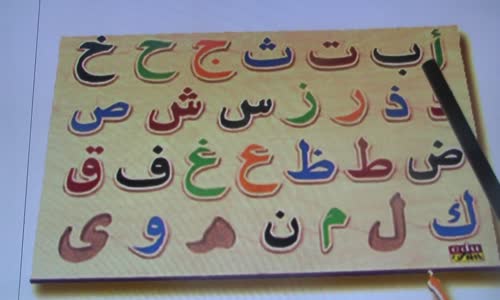 أ ب ت ث ج ح خ
د ذ ر ز س ش ص
ض ط ظ ع غ ف ق
ك ل م ن هـ و ى
edu